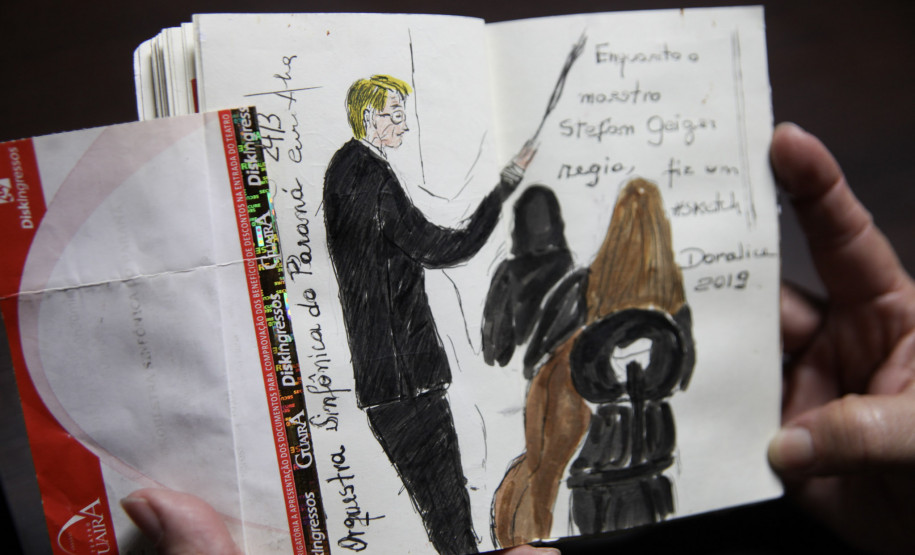 Enquanto o
maestro
Stefan Geiger
regia, fiz um
#sketch
Doralice
2019
Orquestra Sinfônica do Paraná
24/3
DiskIngressos
GUAIRA
DiskIngressos
GUAIRA
DiskIngressos
DiskIngressos
OBRIGATÓRIA A APRESENTAÇÃO DOS DOCUMENTOS PARA COMPROVAÇÃO DOS BENEFÍCIOS DE DESCONTOS NA ENTRADA DO TEATRO
DiskIngressos
GUAIRA